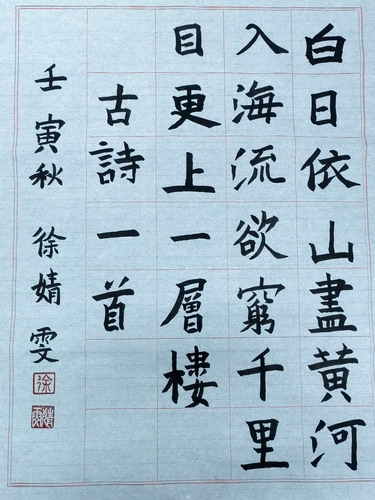 白日依山盡黄河
入海流欲窮千里
目更上一層樓
古詩一首
壬寅秋 徐婧雯
徐
婧雯